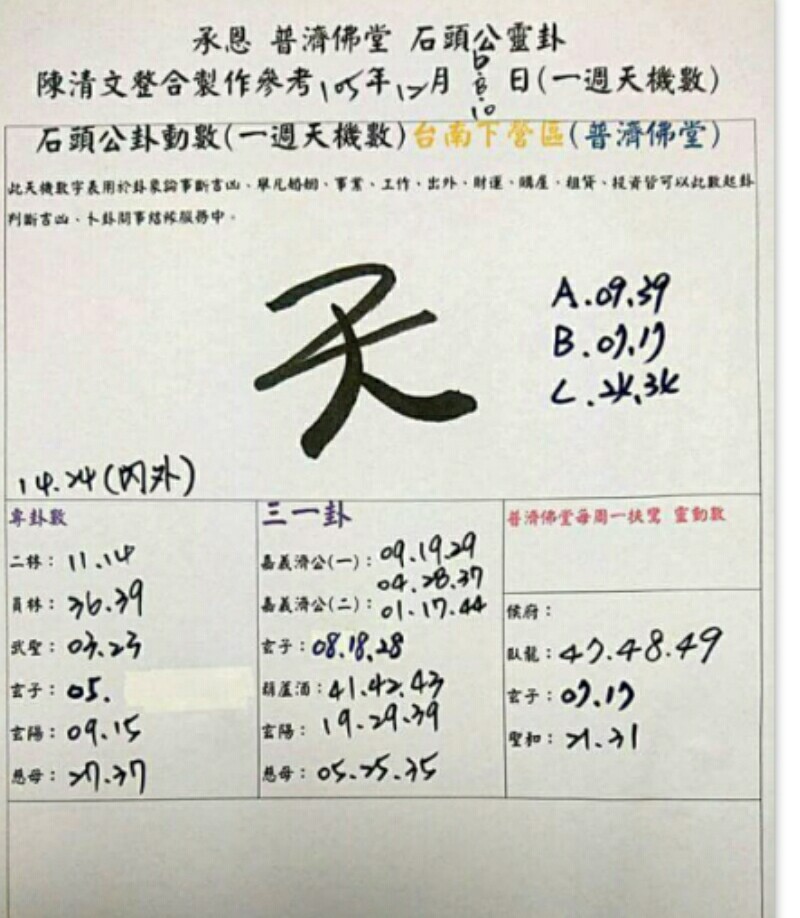 承恩 普濟佛堂 石頭公靈卦
陳清文整合製作參考105年12月6.8.10日(一週天機數)
石頭公卦動數(一週天機數)台南下營區(普濟佛堂)
此天機數字表用於卦象論事斷吉凶、舉凡婚姻、事業、工作、出外、財運、購產、租賃、投資皆可以此數起卦
判斷吉凶、卜卦問事結緣服務中。
天
A.09.39
B.07.17
C.24.34
14.24(內外)
專卦數
二林：11.14
員林：36.39
武聖：03.23
玄子：05.
玄陽：09.15
慈母：27.37
三一卦
嘉義濟公(一)：09.19.29
04.28.37
嘉義濟公(二)：01.17.44
玄子：08.18.28
葫蘆酒：41.42.43
玄陽：19.29.39
慈母：05.25.35
普濟佛堂每周一扶鸞 靈動數
侯府：
臥龍：47.48.49
玄子：07.17
聖和：21.31